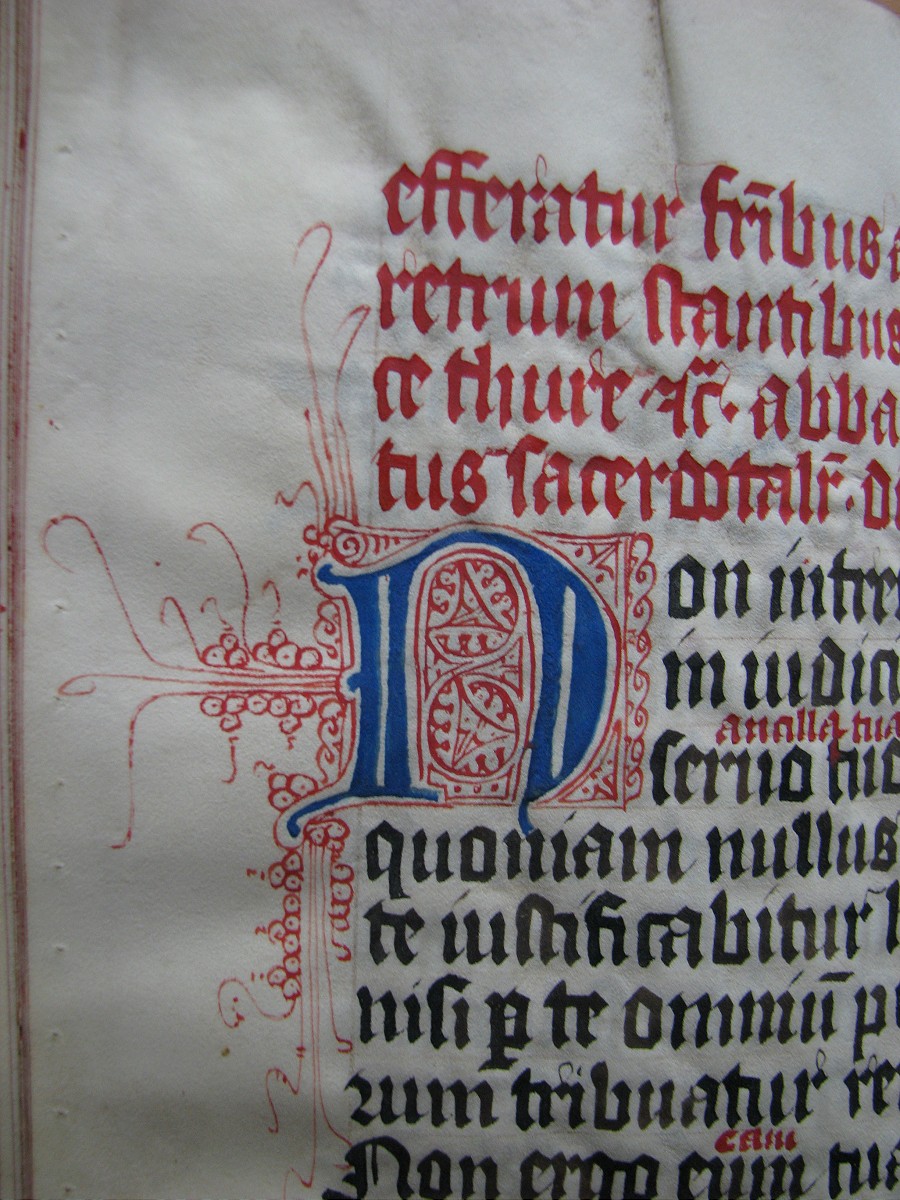 efferatur fr̄ibus
retrum stantibus
ce thure abba
tus sacerdotalr̄.
Non intre
in iudici
ancilla tua
seruo tuo
quoniam nullus
te iustificabitur
nisi ꝑ te omniū
rum tribuatur re
cam
Non ergo eum tua